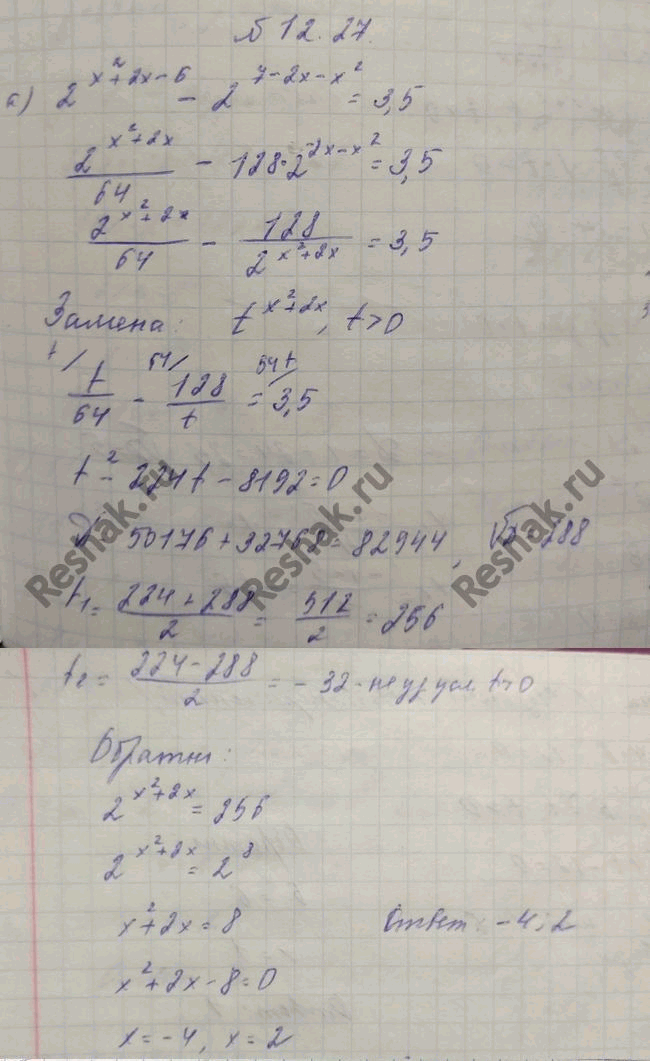 № 12.27.
а) 2^(x²+2x-6) - 2^(7-2x-x²) = 3,5
2^(x²+2x)/64 - 128·2^(-2x-x²) = 3,5
2^(x²+2x)/64 - 128/2^(x²+2x) = 3,5
Замена: t^(x²+2x), t>0
t/ 64/ 64t/
t/64 - 128/t = 3,5
t² - 224t - 8192 = 0
D = 50176 + 32768 = 82944, √D = 288
t₁ = (224+288)/2 = 512/2 = 256
t₂ = (224-288)/2 = -32 - не уд. усл. t>0
Обратн:
2^(x²+2x) = 256
2^(x²+2x) = 2^8
x²+2x = 8
Ответ: -4; 2
x²+2x-8=0
x=-4, x=2
Reshak.ru
Reshak.ru
Reshak.ru